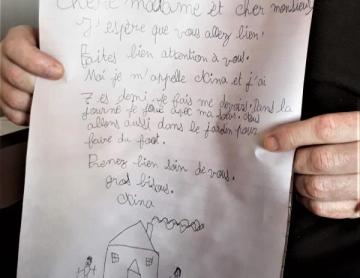 Chère madame et cher monsieur
J'espère que vous allez bien!
Faites bien attention à vous.
Moi je m'appelle Nina et j'ai
7 es demi. Je fais me devoirs. Dans la
journé je joue avec ma sœur. Nous
allons aussi dans le jardin pour
faire du foot.
Prenez bien soin de vous.
gros bisous.
Nina